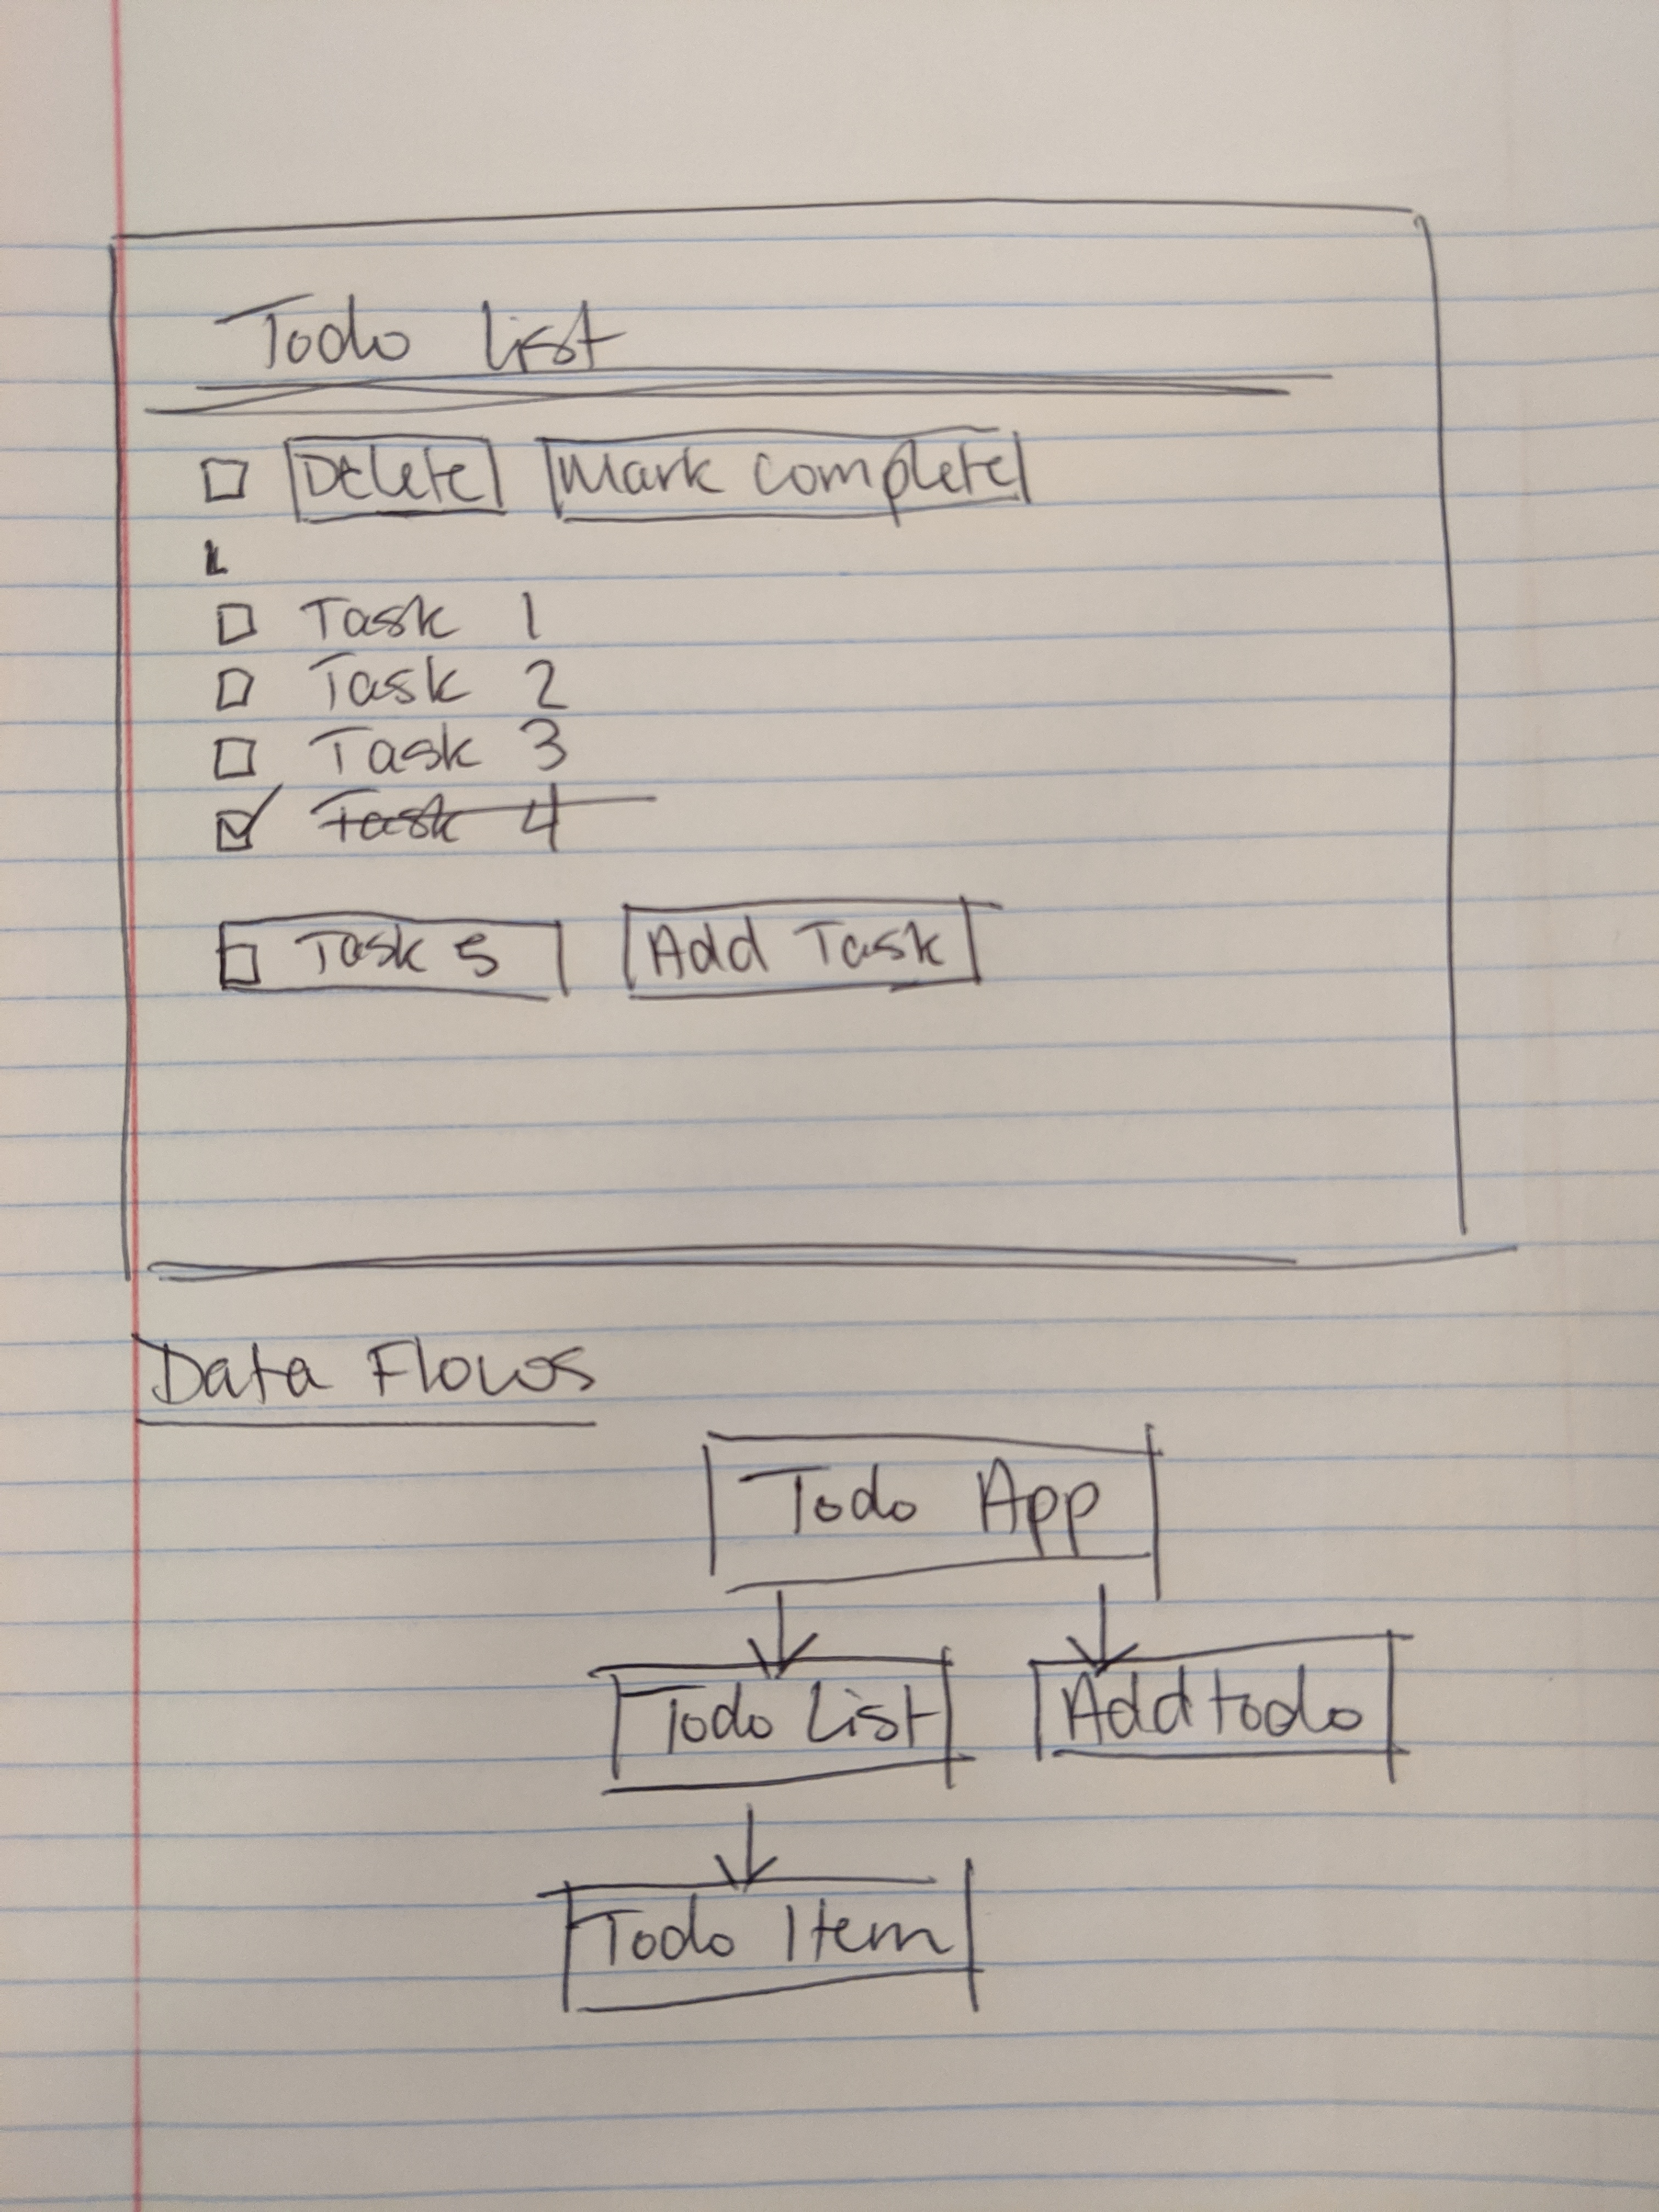 Todo list
Delete Mark complete
Task 1
Task 2
Task 3
Task 4
Task 5 Add Task
Data Flows
Todo App
Todo List Add todo
Todo Item